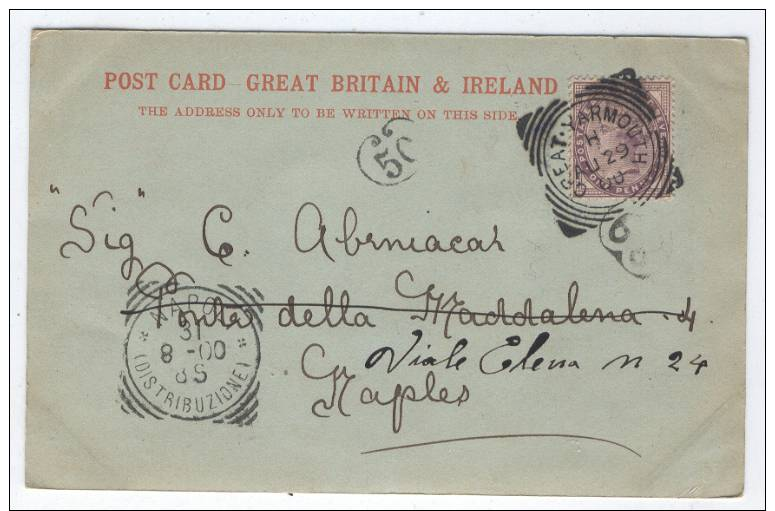 POST CARD GREAT BRITAIN & IRELAND
THE ADDRESS ONLY TO BE WRITTEN ON THIS SIDE.
GREAT·YARMOUTH
29
00
50
"Sig" C. Abeniacar
Ponte della Maddalena. 4
Viale Elena n 24
Naples
NAPO
31
8-00
8S
(DISTRIBUZIONE)